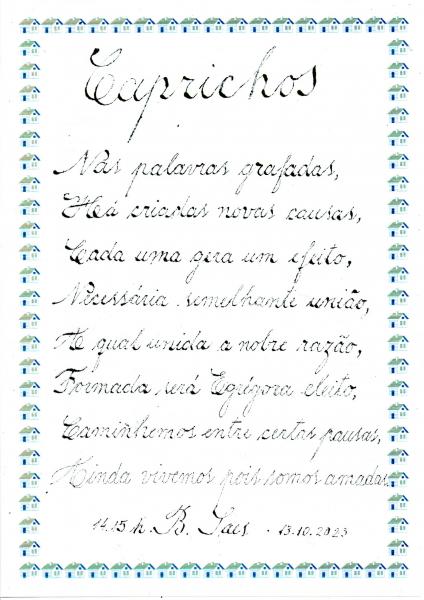 Caprichos
Nas palavras grafadas,
Há criadas novas causas,
Cada uma gera um efeito,
Necessária semelhante união,
A qual unida a nobre razão,
Formada será Egrégora eleito,
Caminhemos entre certas pausas,
Ainda vivemos pois somos amadas.
14.15 h. B. Saes. 13.10.2023